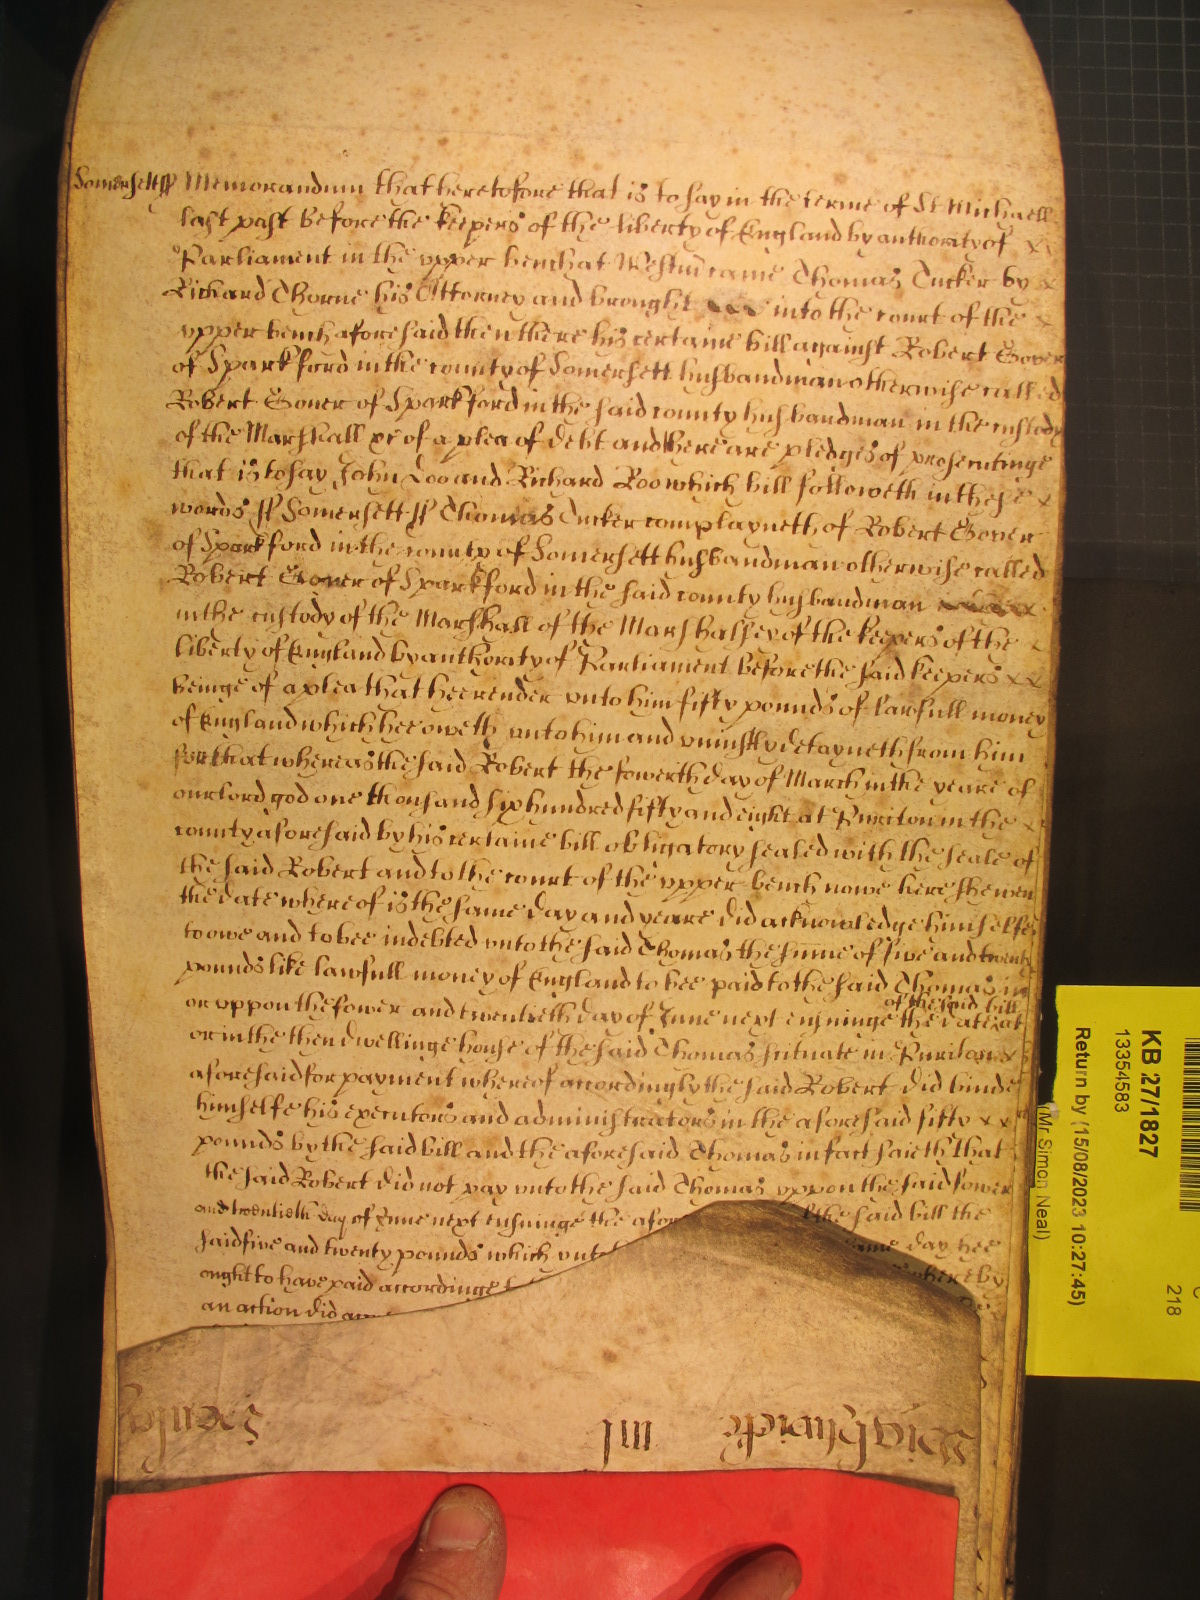 Somersett ss Memorandum that heretofore that is to say in the terme of St Michaell
last past before the keepers of the liberty of England by authority of x x
Parliament in the vpper bench at Westm came Thomas Tucker by x
Richard Thorne his Attorney and brought into the court of the x
vpper bench aforesaid then there his certaine bill against Robert Gover
of Sparkford in the county of Somersett husbandman otherwise called
Robert Gover of Sparkford in the said county husbandman in the custody
of the Marshall xc of a plea of debt and there are pledges of prosecutinge
that is to say John Doo and Richard Roo which bill followeth in these x
words ss Somersett ss Thomas Tucker complayneth of Robert Gover
of Sparkford in the county of Somersett husbandman otherwise called
Robert Gover of Sparkford in the said county husbandman
in the custody of the Marshall of the Marshalsey of the keepers of the x
liberty of England by authority of Parliament before the said keepers x x
beinge of a plea that hee render vnto him fifty pounds of lawfull money
of England which hee oweth vnto him and vniustly detayneth from him
for that whereas the said Robert the fowerth day of March in the yeare of
our lord god one thousand six hundred fifty and eight at Puriton in the x
county aforesaid by his certaine bill obligatory sealed with the seale of
the said Robert and to the court of the vpper bench nowe here shewen
the date whereof is the same day and yeare did acknowledge himselfe
to owe and to bee indebted vnto the said Thomas the summe of five and twenty
pounds like lawfull money of England to bee paid to the said Thomas in
of the said bill
or vppon the fower and twentieth day of June next ensuinge the date at
or in the then dwellinge house of the said Thomas scituate in Puriton x
aforesaid for payment whereof accordingly the said Robert did binde
himselfe his executors and administrators in the aforesaid fifty x x
pounds by the said bill and the aforesaid Thomas in fact saieth that
the said Robert did not pay vnto the said Thomas vppon the said fower
and twentieth day of June next ensuinge the afor the said bill the
said five and twenty pounds which vnto same day hee
ought to have paid accordinge whereby
an action did
KB 27/1827
13354583
Return by (15/08/2023 10:27:45)
218
(Mr Simon Neal)